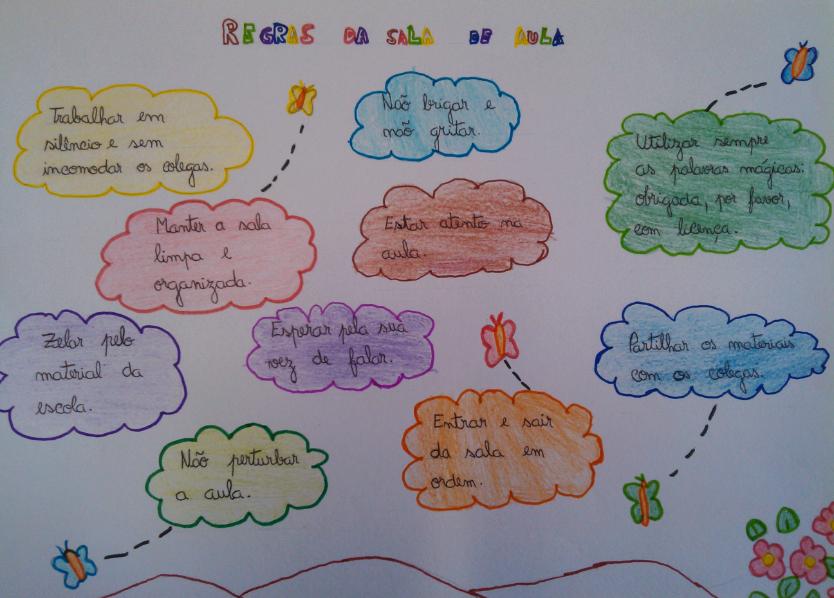 REGRAS DA SALA DE AULA
Trabalhar em
silêncio e sem
incomodar os colegas.
Não brigar e
não gritar.
Utilizar sempre
as palavras mágicas:
obrigada, por favor,
com licença.
Manter a sala
limpa e
organizada.
Estar atento na
aula.
Zelar pelo
material da
escola.
Esperar pela sua
vez de falar.
Partilhar os materiais
com os colegas.
Entrar e sair
da sala em
ordem.
Não perturbar
a aula.